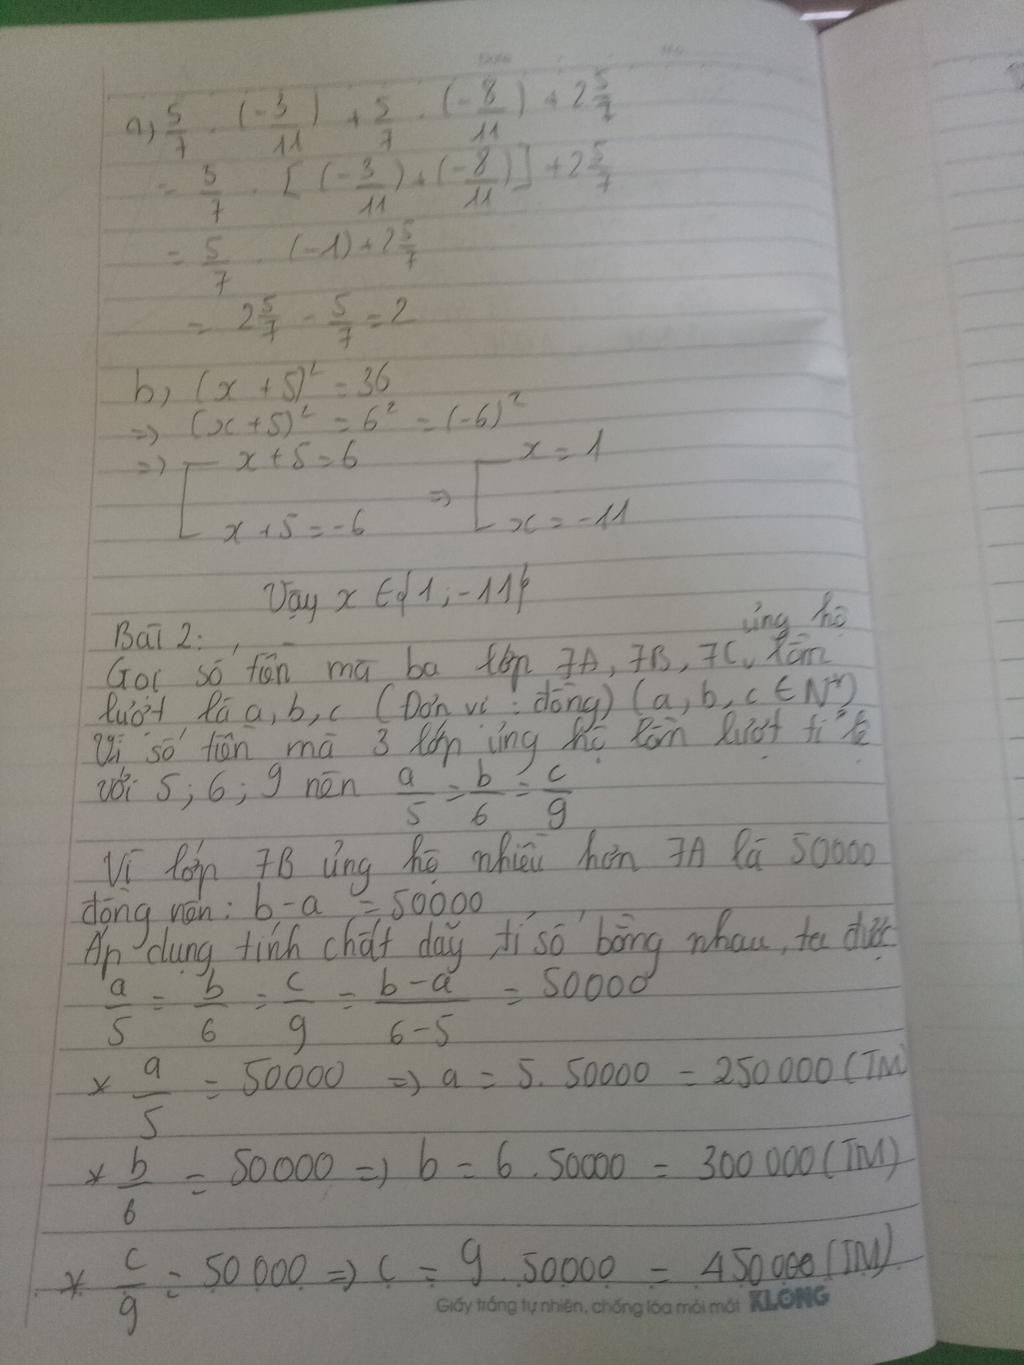 a) 5/7 . (-3/11) + 5/7 . (-8/11) + 2 5/7
= 5/7 . [(-3/11) + (-8/11)] + 2 5/7
= 5/7 . (-1) + 2 5/7
= 2 5/7 - 5/7 = 2
b, (x + 5)² = 36
=> (x + 5)² = 6² = (-6)²
=> [ x + 5 = 6 => [ x = 1
x + 5 = -6 x = -11
Vậy x ∈ {1; -11}
Bài 2:
ủng hộ
Gọi số tiền mà ba lớp 7A, 7B, 7C, lần
lượt là a, b, c (Đơn vị: đồng) (a, b, c ∈ N*)
Vì số tiền mà 3 lớp ủng hộ lần lượt tỉ lệ
với 5; 6; 9 nên a/5 = b/6 = c/9
Vì lớp 7B ủng hộ nhiều hơn 7A là 50000
đồng nên: b - a = 50000
Áp dụng tính chất dãy tỉ số bằng nhau, ta được
a/5 = b/6 = c/9 = b-a/6-5 = 50000
* a/5 = 50000 => a = 5. 50000 = 250 000 (TM)
* b/6 = 50000 => b = 6 . 50000 = 300 000 (TM)
* c/9 = 50 000 => c = 9 . 50000 = 450 000 (TM)
Giấy trắng tự nhiên, chống lóa mỏi mắt KLONG